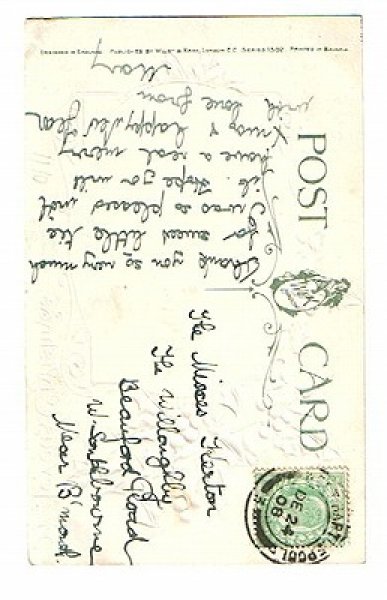 DESIGNED IN ENGLAND. PUBLISHED BY WILDT & KRAY, LONDON. E.C. SERIES 1502 PRINTED IN BAVARIA
POST CARD
Thank you so very much
for sweet little tie
I was so pleased with
it. Hope you will
have a real merry
Xmas & happy New Year
with love from
Mary
The Misses Kerton
The Willoughby
Beauford Road
W. Southbourne
Near B'mouth
DE 24
08